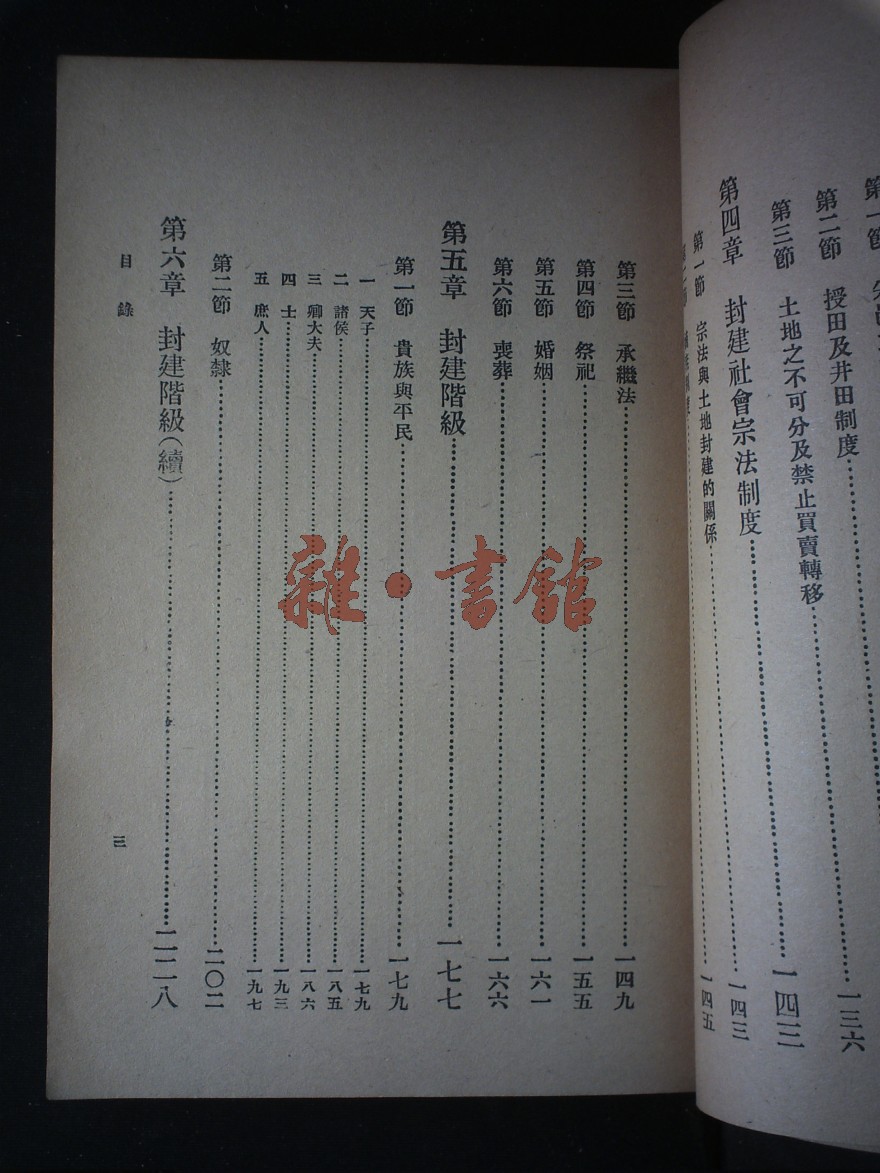 第二節 授田及井田制度 一三六
第三節 土地之不可分及禁止買賣轉移 一四三
第四章 封建社會宗法制度 一四三
第一節 宗法與土地封建的關係 一四五
第三節 承繼法 一四九
第四節 祭祀 一五五
第五節 婚姻 一六一
第六節 喪葬 一六六
第五章 封建階級 一七七
第一節 貴族與平民 一七九
一 天子 一七九
二 諸侯 一八五
三 卿大夫 一八六
四 士 一九三
五 庶人 一九七
第二節 奴隸 二〇二
第六章 封建階級（續） 二二八
目錄
三
雜·書館